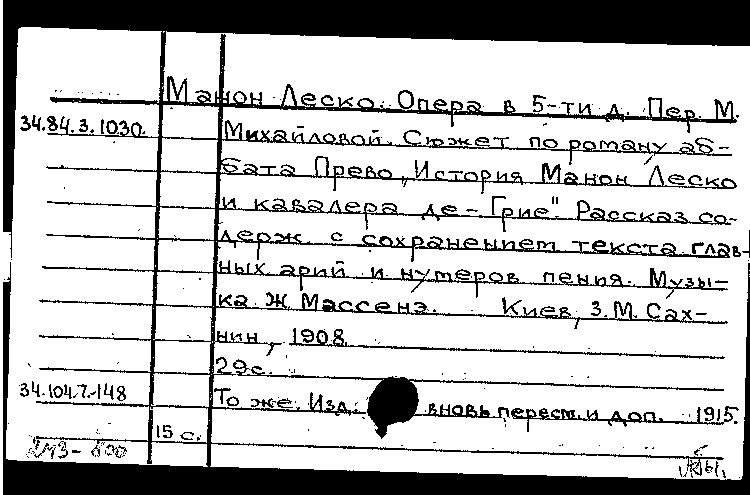 Манон Леско. Опера в 5-ти д. Пер. М.
34.84.3.1030. Михайловой. Сюжет по роману аб-
бата Прево „История Манон Леско
и кавалера де-Грие". Рассказ со-
держ. с сохранением текста глав-
ных арий и нумеров пения. Музы-
ка Ж. Массенэ. Киев, З.М. Сах-
нин, 1908.
29с.
34.104.7.-148 То же. Изд. вновь пересм. и доп. 1915.
15 с.